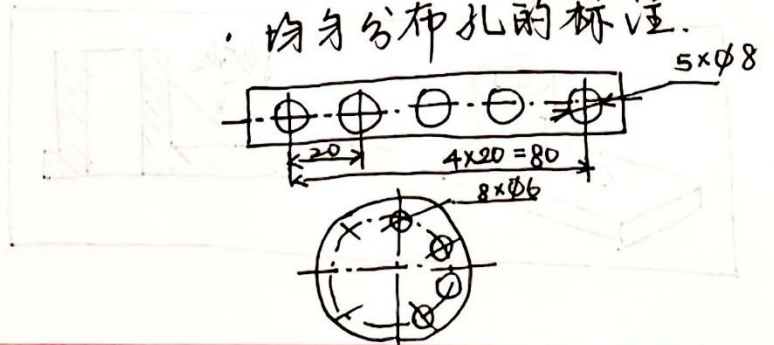 · 均匀分布孔的标注.
5×φ8
20
4×20=80
8×φ6